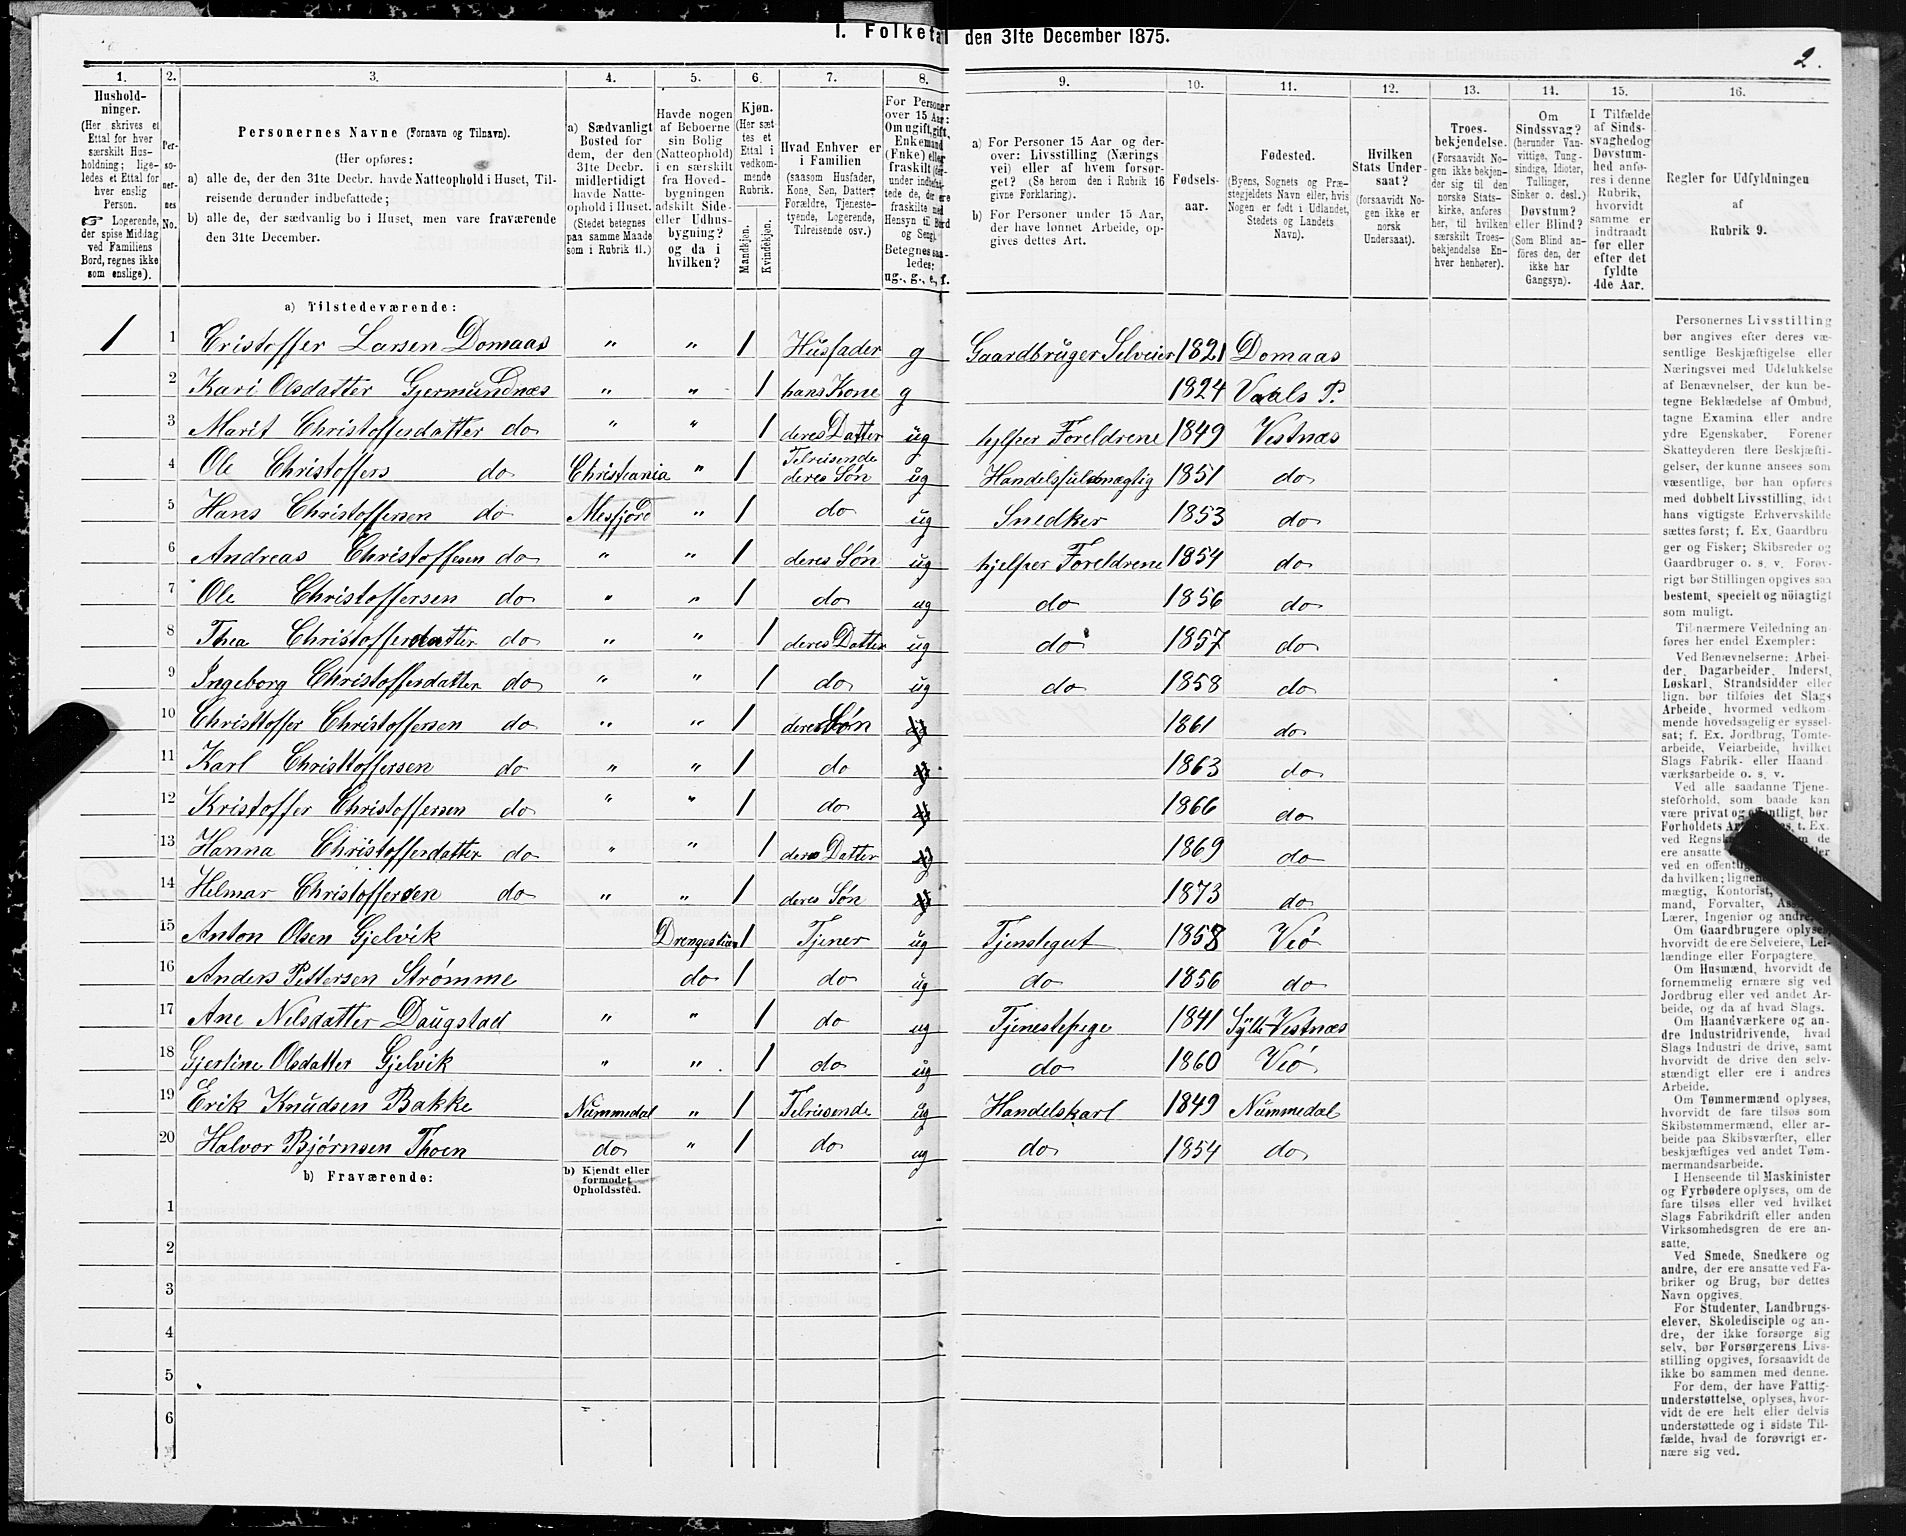 1. Folketal den 31te December 1875.
2.
1. 2. 3. 4. 5. 6. 7. 8. 9. 10. 11. 12. 13. 14. 15. 16.
Hushold-
ninger.
(Her skrives et
Ettal for hver
særskilt Hus-
holdning; lige-
ledes et Ettal for
hver enslig
Person.
☞ Logerende,
der spise Middag
ved Familiens
Bord, regnes ikke
som enslige).
Per-
so-
ner-
nes
No.
Personernes Navne (Fornavn og Tilnavn).
(Her opføres:
a) alle de, der den 31te Decbr. havde Natteophold i Huset, Til-
reisende derunder indbefattede;
b) alle de, der sædvanlig bo i Huset, men vare fraværende
den 31te December.
a) Sædvanligt
Bosted for
dem, der den
31te Decbr.
midlertidigt
havde Natte-
ophold i Huset.
(Stedet betegnes
paa samme Maade
som i Rubrik 11.)
Havde nogen
af Beboerne
sin Bolig
(Natteophold)
i en særskilt
fra Hoved-
bygningen
adskilt Side-
eller Udhus-
bygning?
og da i
hvilken?
Kjøn.
(Her sæt-
tes et
Ettal i
vedkom-
mende
Rubrik.
Mandkjøn.
Kvindekjøn.
Hvad Enhver er
i Familien
(saasom Husfader,
Kone, Søn, Datter,
Forældre, Tjeneste-
tyende, Logerende,
Tilreisende osv.)
For Personer
over 15 Aar:
Om ugift, gift,
Enkemand
(Enke) eller
fraskilt
Hensyn til Bord
og Seng).
Betegnes saa-
ledes:
ug., g., e., f.
a) For Personer 15 Aar og der-
over: Livsstilling (Nærings
vei) eller af hvem forsør-
get? (Se herom den i Rubrik 16
givne Forklaring).
b) For Personer under 15 Aar,
der have lønnet Arbeide, op-
gives dettes Art.
Fødsels-
aar.
Fødested.
(Byens, Sognets og Præ-
stegjeldets Navn eller, hvis
Nogen er født i Udlandet,
Stedets og Landets
Navn).
Hvilken
Stats Under-
saat?
(forsaavidt No-
gen ikke er
norsk
Undersaat).
Troes-
bekjendelse.
(Forsaavidt No-
gen ikke bekjen-
der sig til den
norske Stats-
kirke, anføres
her, til hvilken
særskilt Troes-
bekjendelse En-
hver henhører).
Om
Sindssvag?
(herunder Van-
vittige, Tung-
sindige, Idioter,
Tullinger,
Sinker o. desl.)
Døvstum?
eller Blind?
(Som Blind an-
føres den, der
ikke har
Gangsyn).
I Tilfælde
af Sinds-
svaghed og
Døvstum-
hed anfø-
res i denne
Rubrik,
hvorvidt
samme er
indtraadt
før eller
efter det
fyldte
4de Aar.
Regler for Udfyldningen
af
Rubrik 9.
a) Tilstedeværende:
1 1 Cristoffer Larsen Domaas " " 1 Husfader g Gaardbruger Selveier 1821 Domaas
2 Kari Olsdatter Gjermundnæs " " 1 hans Kone g 1824 Vaals P.
3 Marit Christoffersdatter do " " 1 deres Datter ug hjelper Foreldrene 1849 Vestnæs
4 Ole Christoffers do Christiania " 1 Tilreisende deres Søn ug Handelsfuldmægtig 1851 do
5 Hans Christoffersen do Mesfjord " 1 do ug Snedker 1853 do
6 Andreas Christoffesen do " " 1 deres Søn ug hjelper Foreldrene 1854 do
7 Ole Christoffersen do " " 1 do ug do 1856 do
8 Thea Christoffersdatter do " " 1 deres Datter ug do 1857 do
9 Ingeborg Christoffersdatter do " " 1 do ug do 1858 do
10 Christtoffer Christoffersen do " " 1 deres Søn ug 1861 do
11 Karl Christtoffersen do " " 1 do ug 1863 do
12 Kristoffer Christoffersen do " " 1 do ug 1866 do
13 Hanna Christoffersdatter do " " 1 deres Datter ug 1869 do
14 Helmar Christoffersen do " " 1 deres Søn ug 1873 do
15 Anton Olsen Gjelvik Drengestuen 1 Tjener ug Tjenstegut 1858 Veø
16 Anders Pettersen Strømme do 1 do ug do 1856 do
17 Ane Nilsdatter Daugstad " " 1 do ug Tjenestepige 1841 Sylte Vestnæs
18 Gjertine Olsdatter Gjelvik " " 1 do ug do 1860 Veø
19 Erik Knudsen Bakke Nummedal " 1 Tilreisende ug Handelskarl 1849 Nummedal
20 Halvor Bjørnsen Thoen do " 1 do ug do 1854 do
b) Fraværende:
b) Kjendt eller
formodet
Opholdssted.
1
2
3
4
5
6
Personernes Livsstilling
bør angives efter deres væ-
sentlige Beskjæftigelse eller
Næringsvei med Udelukkelse
af Benævnelser, der kun be-
tegne Beklædelse af Ombud,
tagne Examina eller andre
ydre Egenskaber. Forener
Skatteyderen flere Beskjæfti-
gelser, der kunne ansees som
væsentlige, bør han opføres
med dobbelt Livsstilling, idet
hans vigtigste Erhvervskilde
sættes først; f. Ex. Gaardbru
ger og Fisker; Skibsreder og
Gaardbruger o. s. v. Forøv-
rigt bør Stillingen opgives saa
bestemt, specielt og nöiagtigt
som muligt.
Til nærmere Veiledning an-
føres her endel Exempler:
Ved Benævnelserne: Arbei-
der, Dagarbeider, Inderst,
Løskarl, Strandsidder eller
lign. bør tilføies det Slags
Arbeide, hvormed vedkom-
mende hovedsagelig er syssel-
sat; f. Ex. Jordbrug, Tomte-
arbeide, Veiarbeide, hvilket
Slags Fabrik- eller Haand
værksarbeide o. s. v.
Ved alle saadanne Tjene-
steforhold, som baade kan
være privat og offentligt, bør
Forholdets t. Ex.
ved
ere ansatte
ved en offentlig
da hvilken;
mægtig, Kontorist,
mand, Forvalter,
Lærer, Ingeniør og andre.
Om Gaardbrugere oplyses,
hvorvidt de ere Selveiere, Lei-
lændinge eller Forpagtere.
Om Husmænd, hvorvidt de
fornemmelig ernære sig ved
Jordbrug eller ved andet Ar-
beide, og da af hvad Slags.
Om Haandværkere og an-
dre Industridrivende, hvad
Slags Industri de drive, samt
hvorvidt de drive den selv-
stændigt eller ere i andres
Arbeide.
Om Tømmermænd oplyses,
hvorvidt de fare tilsøs som
Skibstømmermænd, eller ar-
beide paa Skibsværfter, eller
beskjæftiges ved andet Tøm-
mermandsarbeide.
I Henseende til Maskinister
og Fyrbødere oplyses, om de
fare tilsøs eller ved hvilket
Slags Fabrikdrift eller anden
Virksomhedsgren de ere an-
satte.
Ved Smede, Snedkere og
andre, der ere ansatte ved Fa-
briker og Brug, bør dettes
Navn opgives.
For Studenter, Landbrugs-
elever, Skoledisciple og an-
dre, der ikke forsørge sig
selv, bør Forsørgerens Livs-
stilling opgives, forsaavidt de
ikke bo sammen med denne.
For dem, der have Fattig-
understøttelse, oplyses, hvor-
vidt de ere helt eller delvis
understøttede og i sidste Til-
fælde, hvad de forøvrigt er-
nære sig ved.